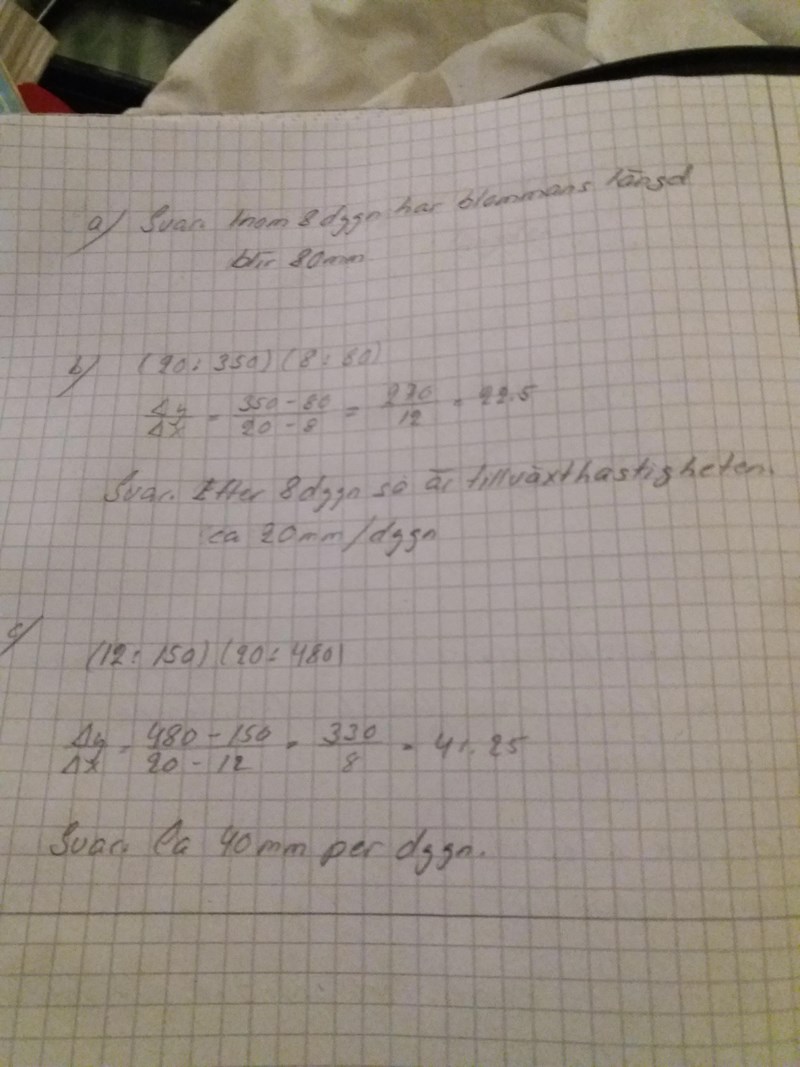 a) Svar. Inom 8 dygn har blommans längd
blir 80mm
b) (20: 350) (8: 80)
Δy/Δx = 350-80/20-8 = 270/12 = 22.5
Svar. Efter 8 dygn så är tillväxthastigheten.
ca 20mm/dygn
c) (12: 150) (20: 480)
Δy/Δx = 480-150/20-12 = 330/8 = 41.25
Svar. Ca 40mm per dygn.